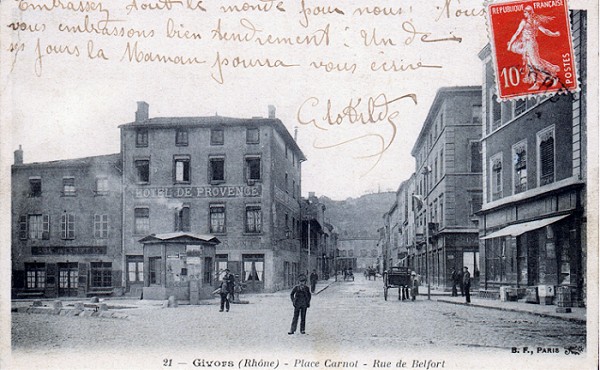 Embrassez tout le monde pour nous. Nous
vous embrassons bien tendrement : Un de
ses jours la Maman pourra vous ecrire
Clotilde
REPUBLIQUE FRANÇAISE
10c POSTES
HOTEL DE PROVENCE
21 — Givors (Rhône) - Place Carnot - Rue de Belfort
B. F., PARIS